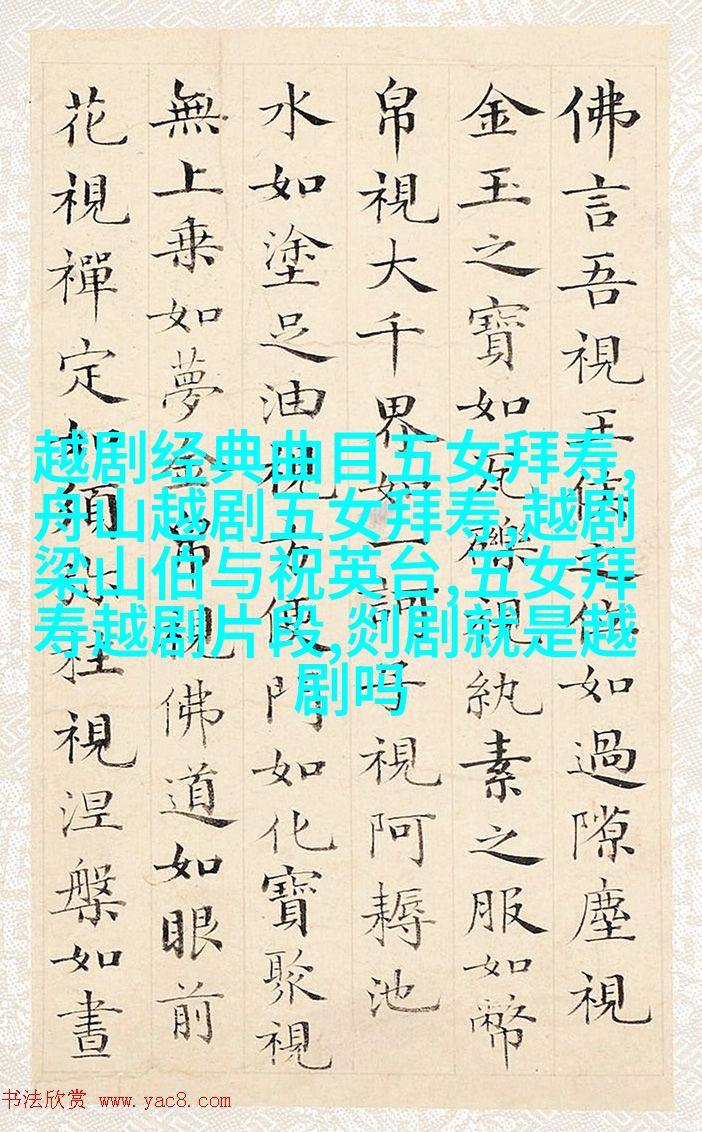 佛言吾視王侯之位如過隙塵視
金玉之寶如瓦礫視紈素之服如幣
帛視大千界如一訶子視阿耨池
水如塗足油視方便門如化寶聚視
無上乗如夢金帛視佛道如眼前
花視禪定如須弥柱視涅槃如晝
越剧经典曲目五女拜寿,
舟山越剧五女拜寿,越剧
梁山伯与祝英台,五女拜
寿越剧片段,剡剧就是越
剧吗
书法欣赏 www.yac8.com